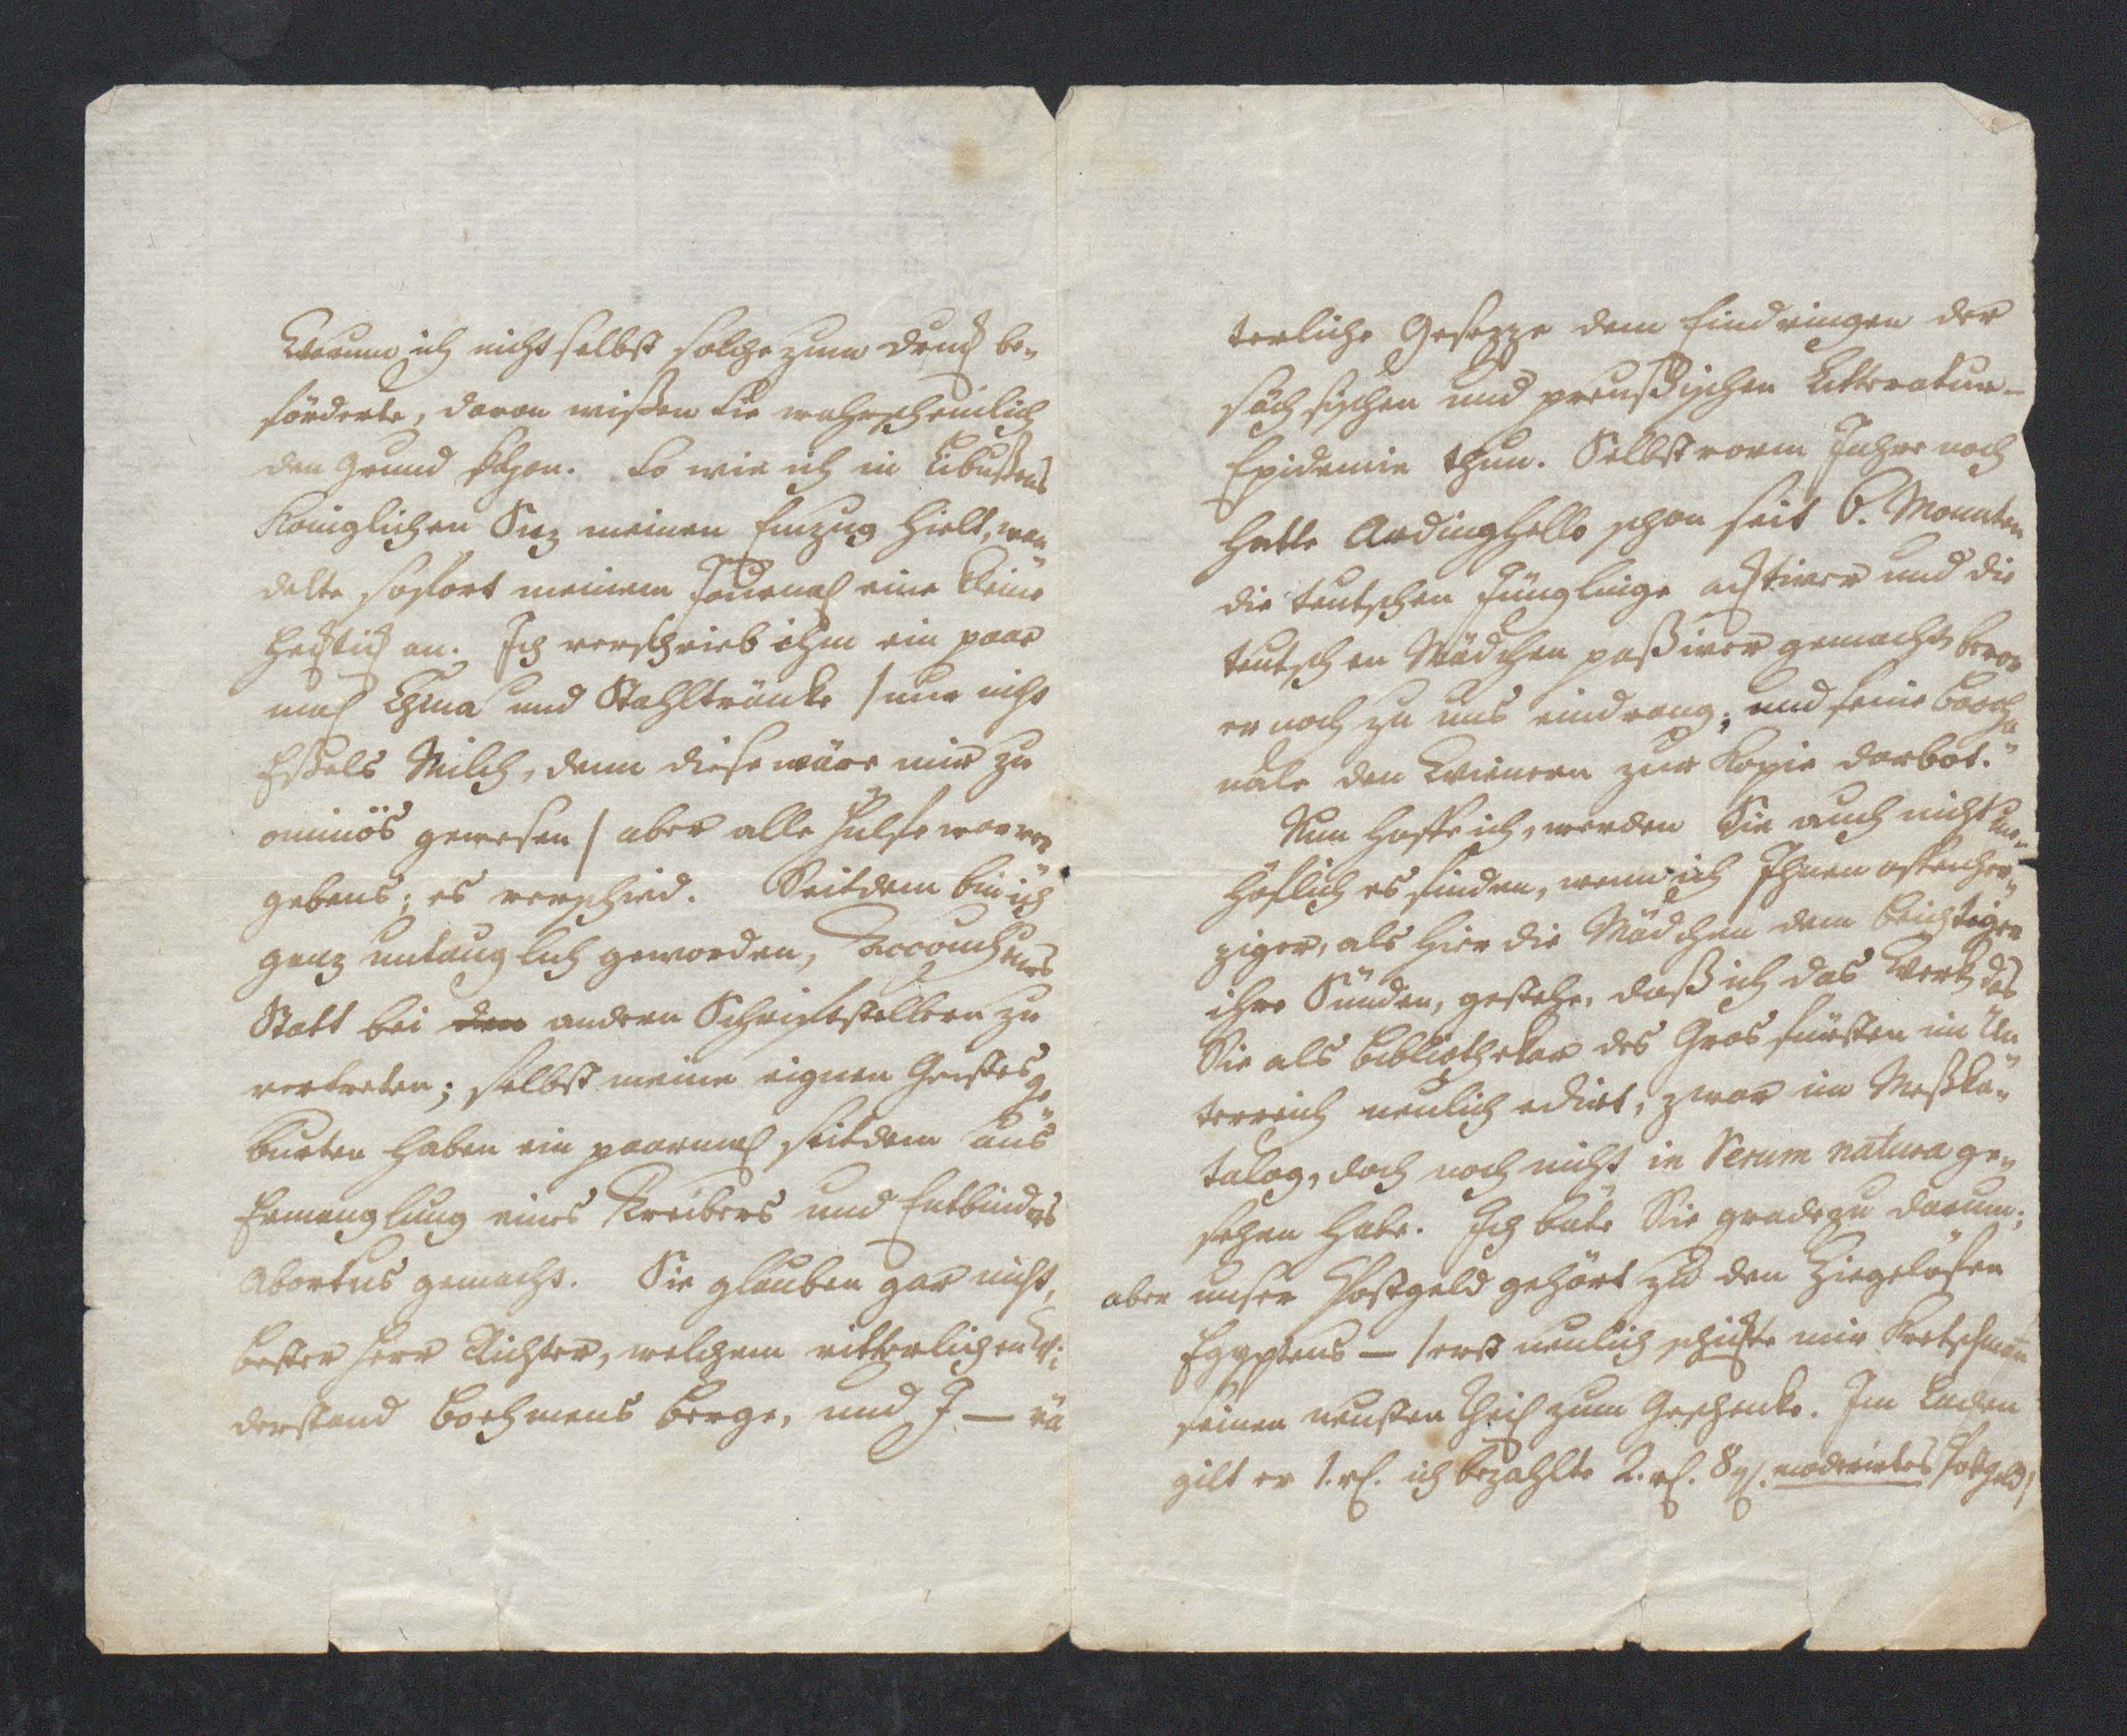 Warum ich nicht selbst solche zum Druck be-
förderte, davon wißen Sie wahrscheinlich
den Grund schon. So wie ich in Libußens
Königlichen Siz meinen Einzug hielt, wan
delte sofort meinem Journal eine kleine
Hecktick an. Ich verschrieb ihm ein paar
mal China und Stahltränke /nur nicht
Eßels Milch, denn diese wäre mir zu
ominös gewesen/ aber alle Hülfe war ver
gebens; es verschied. Seitdem bin ich
ganz untauglich geworden, Accoucheurs
Statt bei den andern Schriftstellern zu
vertreten; selbst meine eignen Geistesge
burten haben ein paarmal seitdem aus
Ermanglung eines Treibers und Entbinders
Abortus gemacht. Sie glauben gar nicht,
bester Herr Richter, welchem ritterlichen Wi-
derstand Boehmens Berge, und J — vä
terliche Gesezze dem Eindringen der
sächsischen und preußischen Litteratur-
Epidemie thun. Selbst vorm Jahre noch
hatte Ardinghello schon seit 6. Monaten
die teutschen Jünglinge acktiver und die
teutschen Mädchen paßiver gemacht, bevor
er noch zu uns eindrang, und seine Baccha
nale den Wienern zur Kopie darbot.
Nun hoffe ich, werden Sie auch nicht un-
höflich es finden, wenn ich Ihnen offenher-
ziger, als hier die Mädchen dem Beichtiger
ihre Sünden, gestehe, daß ich das Werk das
Sie als Bibliothekar des Gros fürsten im Un
terreich neulich edirt, zwar im Meßka-
talog, doch noch nicht in Rerum natura ge-
sehen habe. Ich bäte Sie gradezu darum;
aber unser Postgeld gehört zu den Ziegelöfen
Egyptens — /erst neulich schickte mir Kretschmann
seinen neusten Theil zum Geschenke. Im Laden
gilt er 1. rl. ich bezahlte 2. rl. 8 gl. moderirtes Postgeld/